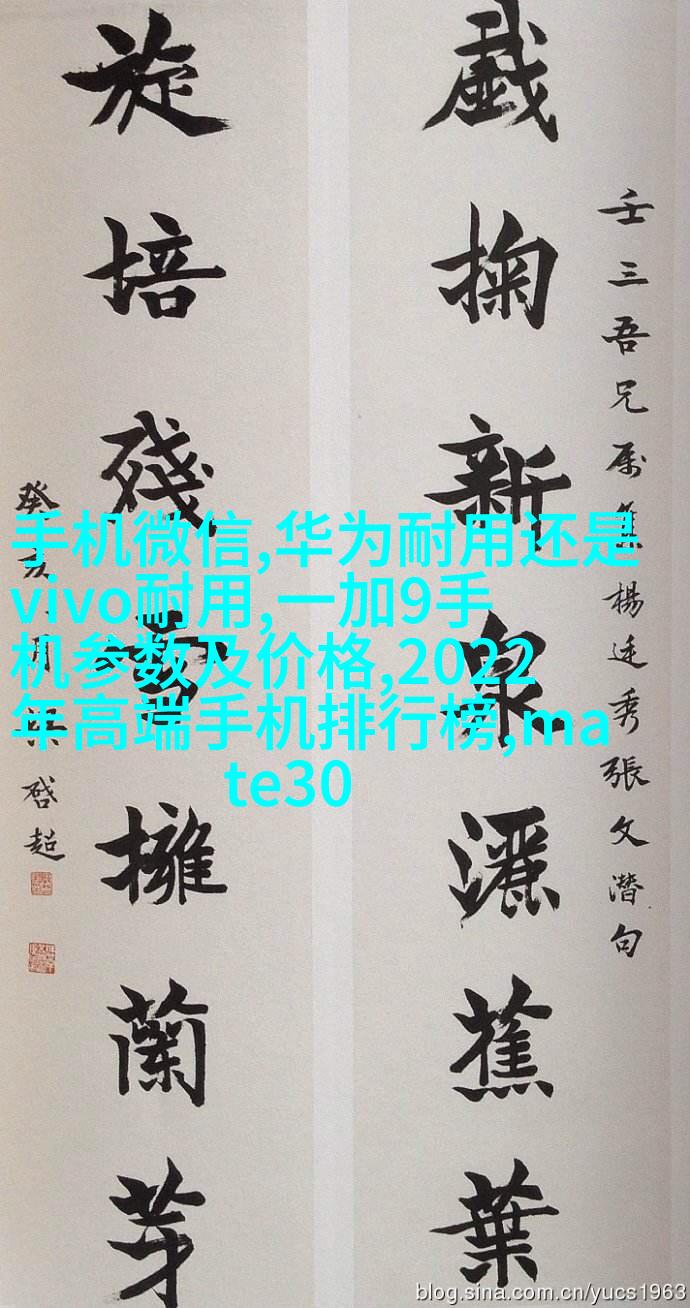 壬三吾兄属集楊廷秀張文潛句
戲掬新泉灑蕉葉
旋培殘雪擁蘭芽
癸亥月梁啓超
手机微信,华为耐用还是
vivo耐用,一加9手
机参数及价格,2022
年高端手机排行榜,ma
te30
blog.sina.com.cn/yucs1963